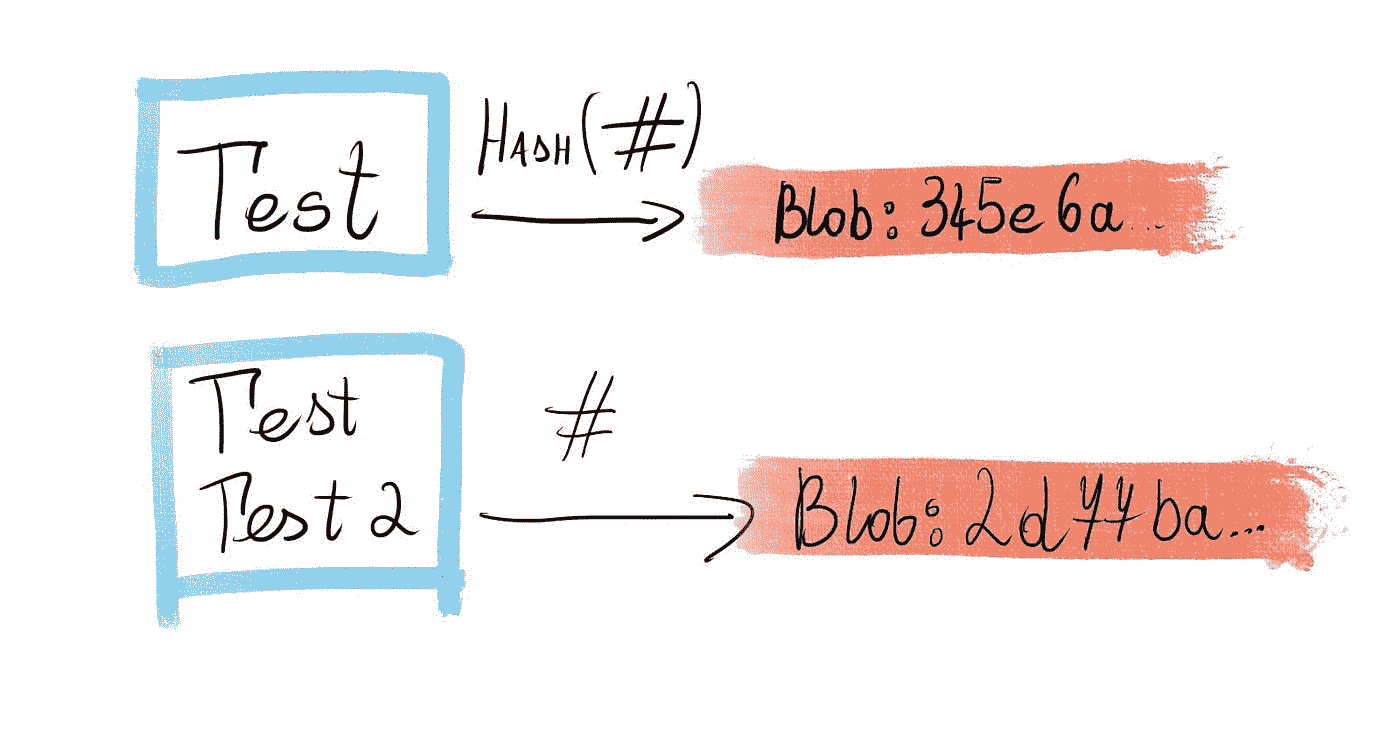 Test
HASH (#)
Blob: 345e6a...
Test
Test 2
#
Blob: 2d77ba...